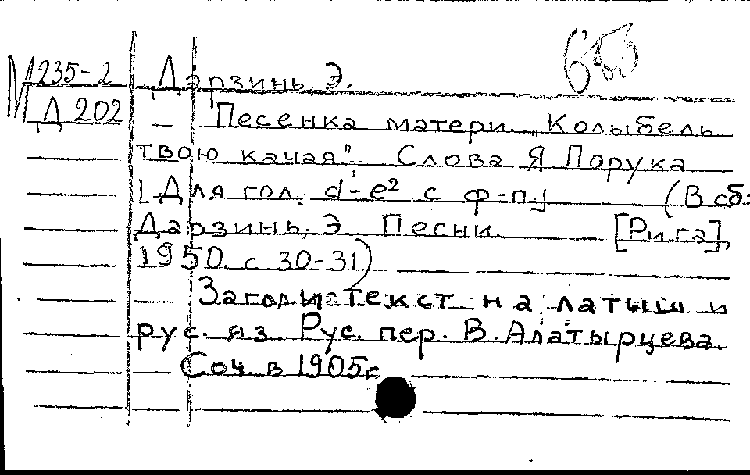 М 235-2 Дарзинь Э.
Д 202 – Песенка матери „Колыбель
твою качая". Слова Я Порука
[Для гол. d¹-e² с ф-п.] (В сб:
Дарзинь, Э. Песни. [Рига],
1950 с 30-31)
Загол. и текст на латыш и
рус. яз. Рус. пер. В. Алатырцева.
Соч в 1905г